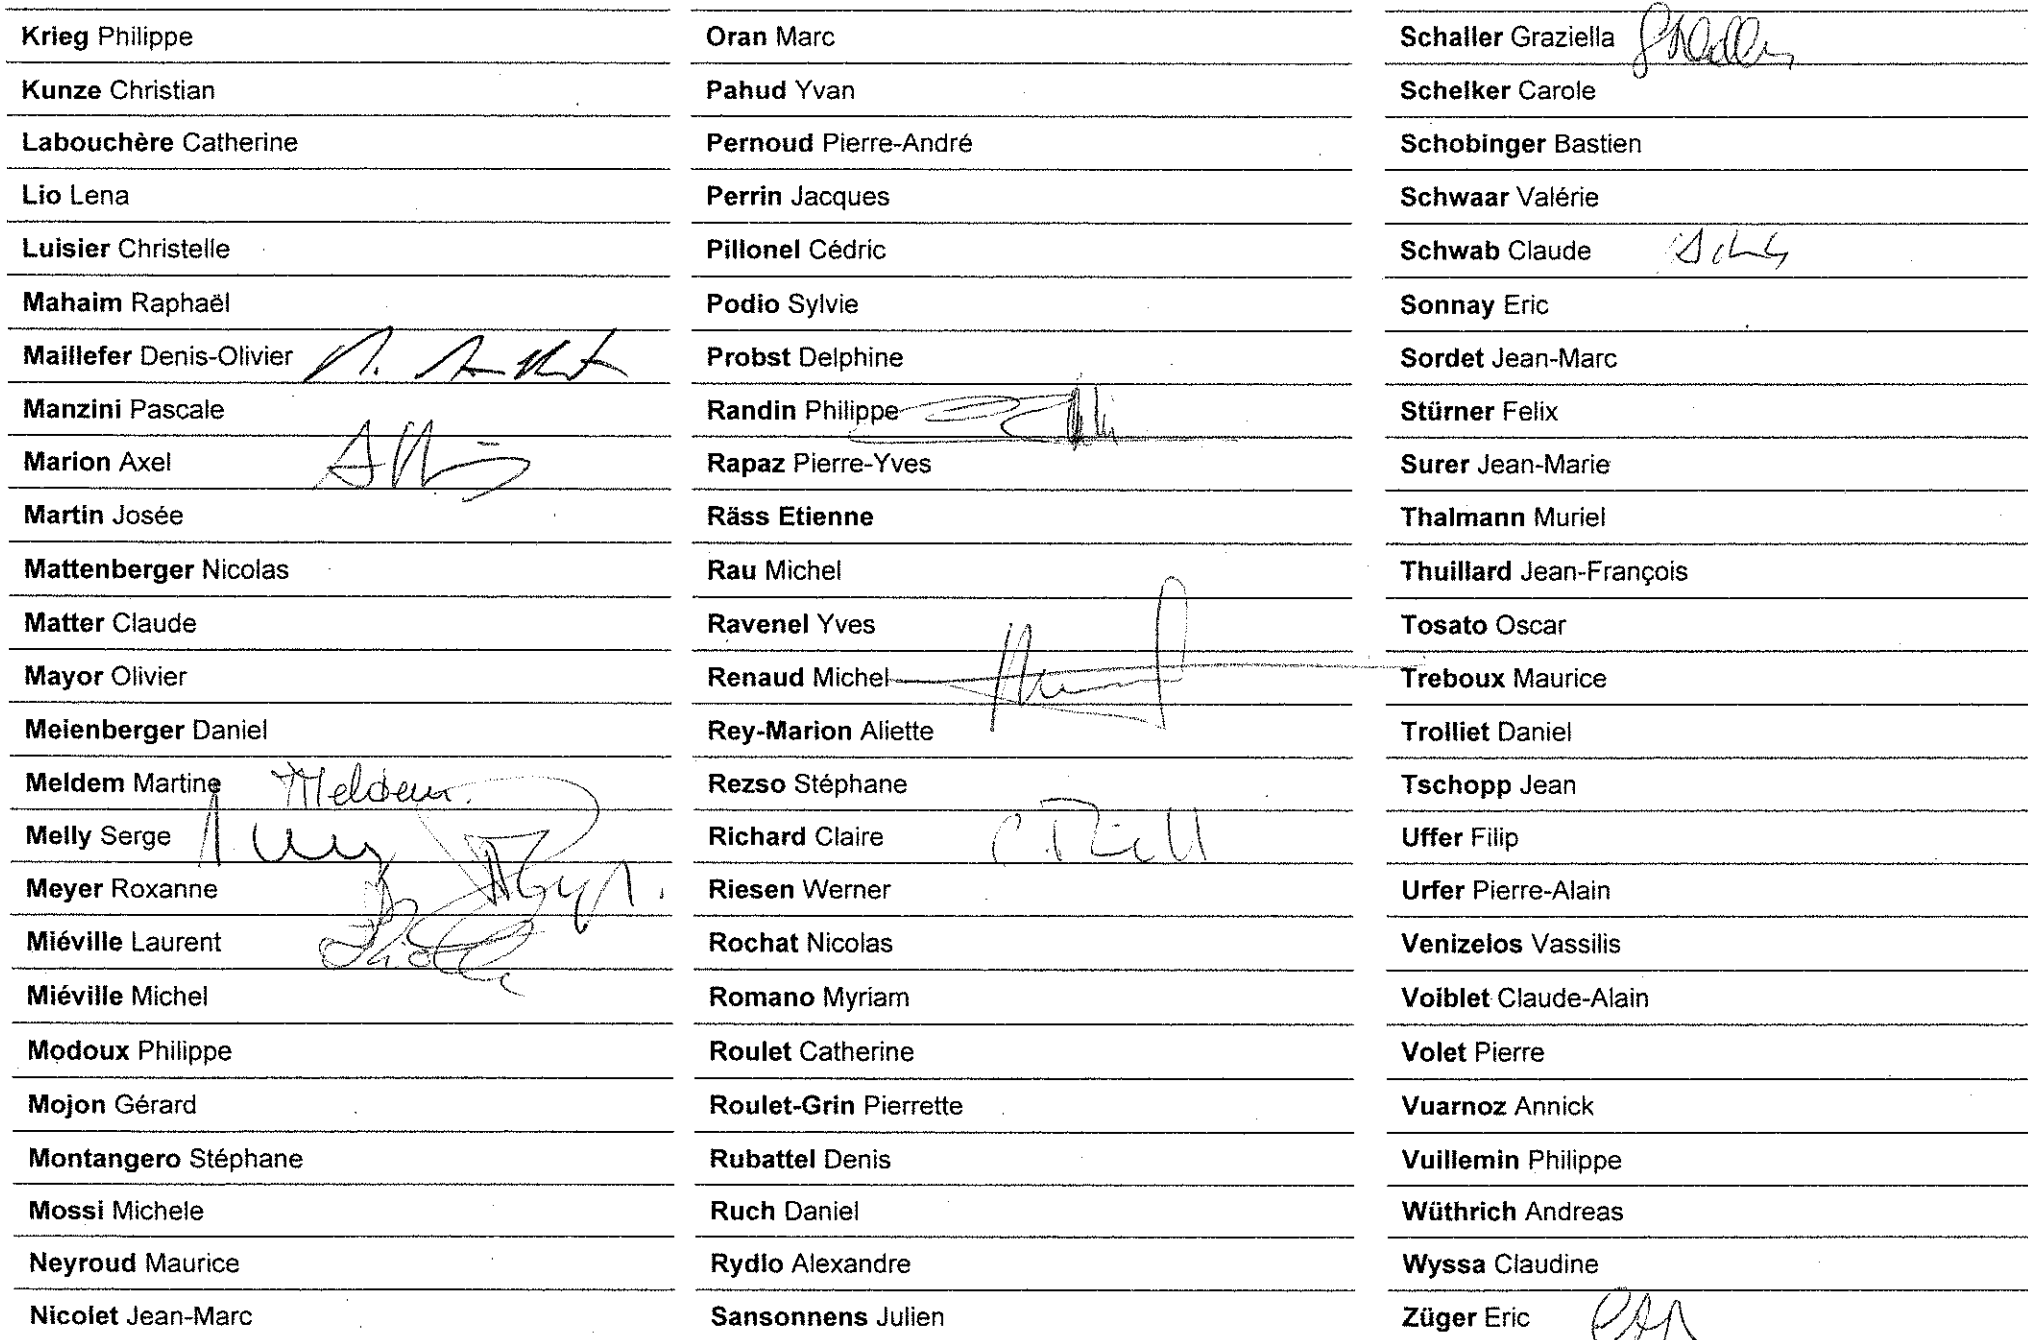 Krieg Philippe
Kunze Christian
Labouchère Catherine
Lio Lena
Luisier Christelle
Mahaim Raphaël
Maillefer Denis-Olivier
Manzini Pascale
Marion Axel
Martin Josée
Mattenberger Nicolas
Matter Claude
Mayor Olivier
Meienberger Daniel
Meldem Martine Meldem.
Melly Serge
Meyer Roxanne
Miéville Laurent
Miéville Michel
Modoux Philippe
Mojon Gérard
Montangero Stéphane
Mossi Michele
Neyroud Maurice
Nicolet Jean-Marc
Oran Marc
Pahud Yvan
Pernoud Pierre-André
Perrin Jacques
Pillonel Cédric
Podio Sylvie
Probst Delphine
Randin Philippe
Rapaz Pierre-Yves
Räss Etienne
Rau Michel
Ravenel Yves
Renaud Michel
Rey-Marion Aliette
Rezso Stéphane
Richard Claire
Riesen Werner
Rochat Nicolas
Romano Myriam
Roulet Catherine
Roulet-Grin Pierrette
Rubattel Denis
Ruch Daniel
Rydlo Alexandre
Sansonnens Julien
Schaller Graziella
Schelker Carole
Schobinger Bastien
Schwaar Valérie
Schwab Claude
Sonnay Eric
Sordet Jean-Marc
Stürner Felix
Surer Jean-Marie
Thalmann Muriel
Thuillard Jean-François
Tosato Oscar
Treboux Maurice
Trolliet Daniel
Tschopp Jean
Uffer Filip
Urfer Pierre-Alain
Venizelos Vassilis
Voiblet Claude-Alain
Volet Pierre
Vuarnoz Annick
Vuillemin Philippe
Wüthrich Andreas
Wyssa Claudine
Züger Eric